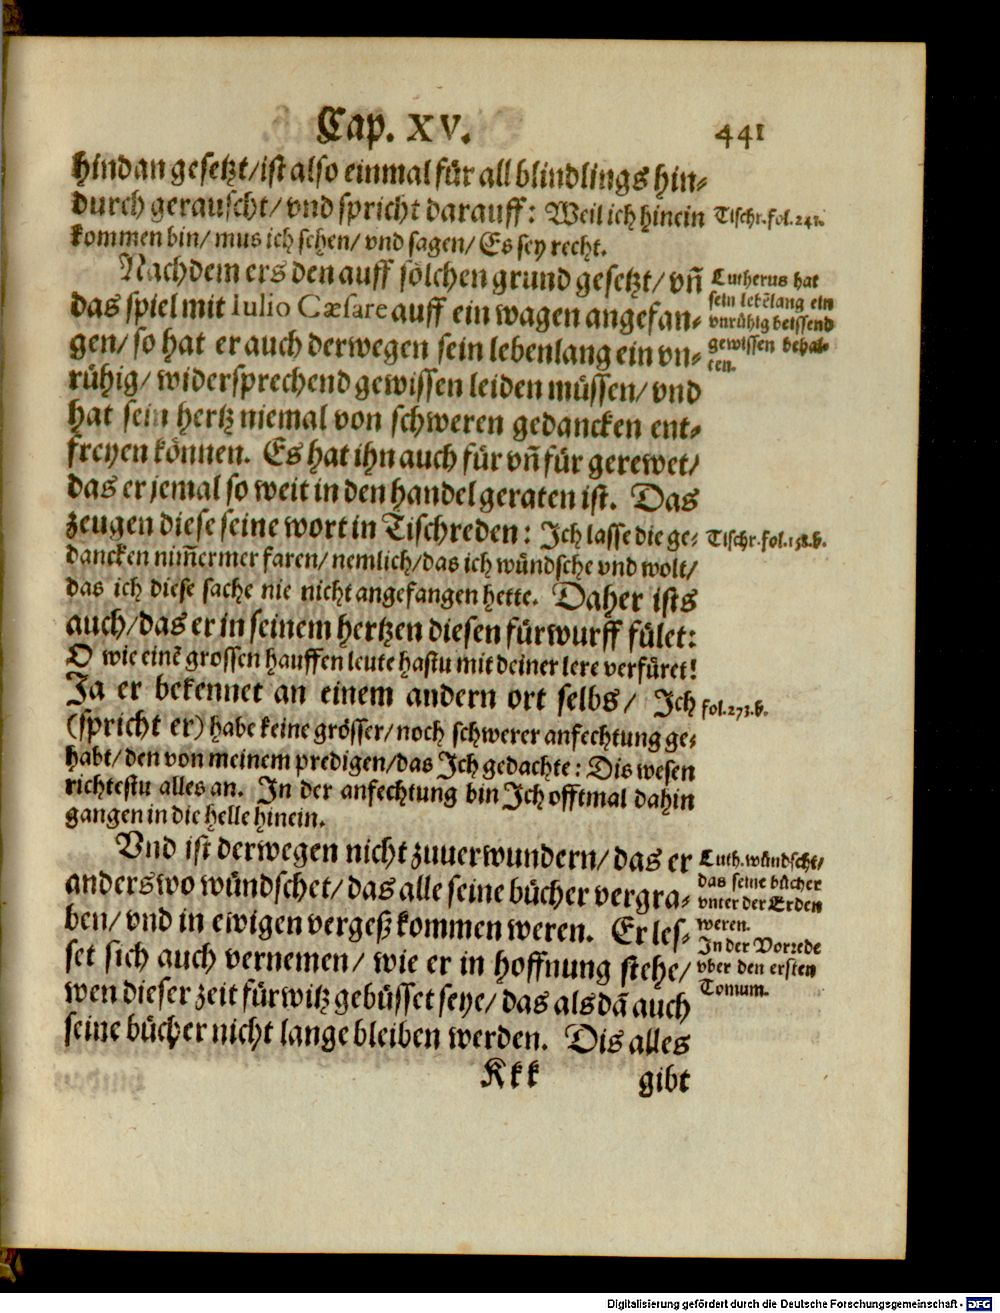 Cap. XV. 441
hindan gesetzt/ ist also einmal für all blindlings hin⸗
durch gerauscht/ vnd spricht darauff: Weil ich hinein
Tischr. fol. 241.
kommen bin/ mus ich sehen/ vnd sagen/ Es sey recht.
Nachdem ers den auff sölchen grund gesetzt/ vñ
das spiel mit Iulio Cæsare auff ein wagen angefan⸗
gen/ so hat er auch derwegen sein lebenlang ein vn⸗
rühig/ widersprechend gewissen leiden müssen/ vnd
hat sein hertz niemal von schweren gedancken ent⸗
Lutherus hat
sein lebẽlang ein
vnrühig beissend
gewissen behal⸗
ten.
freyen können. Es hat ihn auch für vñ für gerewet/
das er jemal so weit in den handel geraten ist. Das
zeugen diese seine wort in Tischreden: Ich lasse die ge⸗
Tischr. fol. 158. b.
dancken nim̃ermer faren/ nemlich/ das ich wündsche vnd wolt/
das ich diese sache nie nicht angefangen hette. Daher ists
auch/ das er in seinem hertzen diesen fürwurff fület:
O wie einẽ grossen hauffen leute hastu mit deiner lere verfüret!
Ja er bekennet an einem andern ort selbs/ Ich
fol. 273. b.
(spricht er) habe keine grösser/ noch schwerer anfechtung ge⸗
habt/ den von meinem predigen/ das Ich gedachte: Dis wesen
richtestu alles an. In der anfechtung bin Ich offtmal dahin
gangen in die helle hinein.
Vnd ist derwegen nicht zuuerwundern/ das er
anderswo wündschet/ das alle seine bücher vergra⸗
ben/ vnd in ewigen vergeß kommen weren. Er les⸗
set sich auch vernemen/ wie er in hoffnung stehe/
wen dieser zeit fürwitz gebüsset seye/ das als dã auch
seine bücher nicht lange bleiben werden. Dis alles
Luth. wündscht/
das seine bücher
vnter der Erden
weren.
In der Vorrede
vber den ersten
Tomum.
Kkk gibt
Digitalisierung gefördert durch die Deutsche Forschungsgemeinschaft - DFG